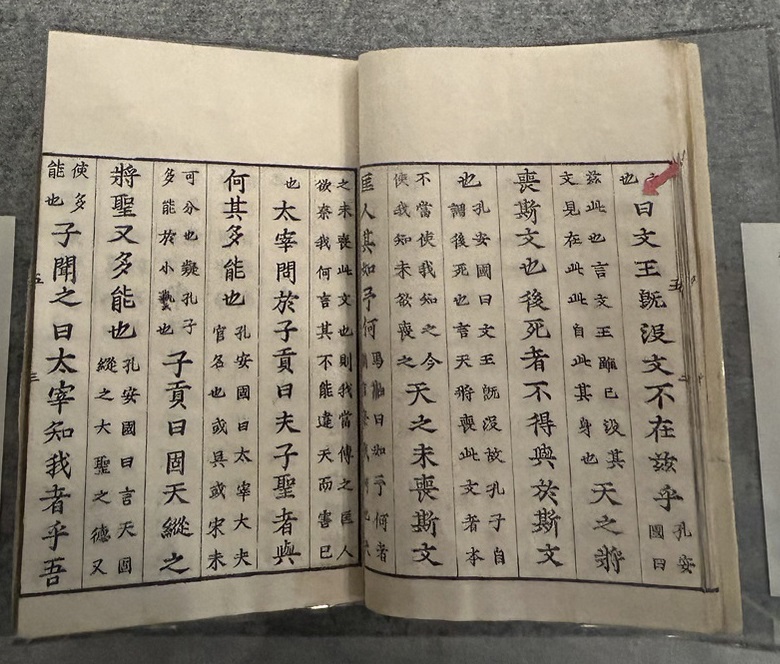 也曰文王既没文不在兹乎孔安國曰
兹此也言文王雖已没其文見在此此自此其身也天之將
喪斯文也後死者不得與於斯文
也孔安國曰文王既没故孔子自謂後死也言天將喪此文者本
不當使我知之今使我知未欲喪之天之未喪斯文
匡人其如予何馬融曰如予何者
之未喪此文也則我當傳之匡人欲奈我何言其不能違天而害已
也太宰問於子貢曰夫子聖者與
何其多能也孔安國曰太宰大夫官名也或吳或宋未
可分也疑孔子多能於小藝也子貢曰固天縱之
將聖又多能也孔安國曰言天固縱之大聖之德又
使多能也子聞之曰太宰知我者乎吾